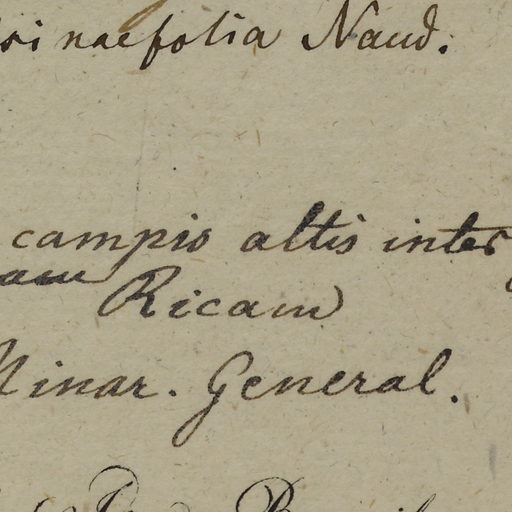 rinaefolia Naud.
campis altis inter
am Ricam
Minar. General.